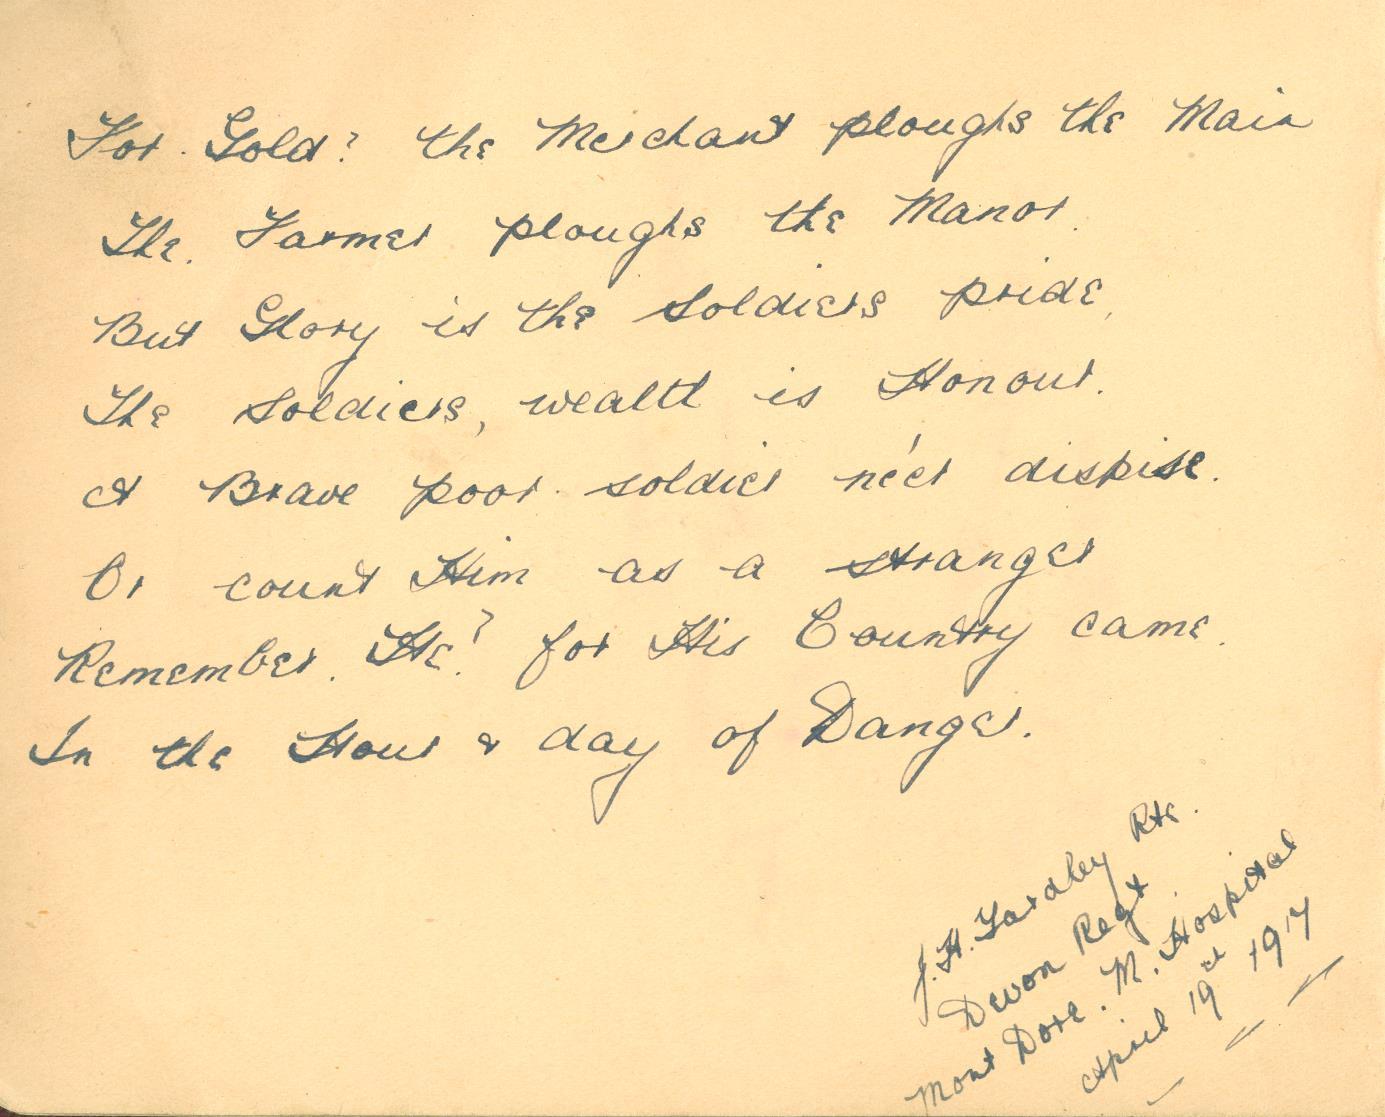 For. Gold? the Merchant ploughs the Main
The. Farmer ploughs the Manor.
But Glory is the soldiers pride,
The soldiers, wealth is Honour.
A Brave poor. soldier né'er dispise.
Or count Him as a stranger
Remember. He? for His Country came.
In the Hour & day of Danger.
J. H. Yardley Pte.
Devon Regt
Mont Dore. M. Hospital
April 19th 1917